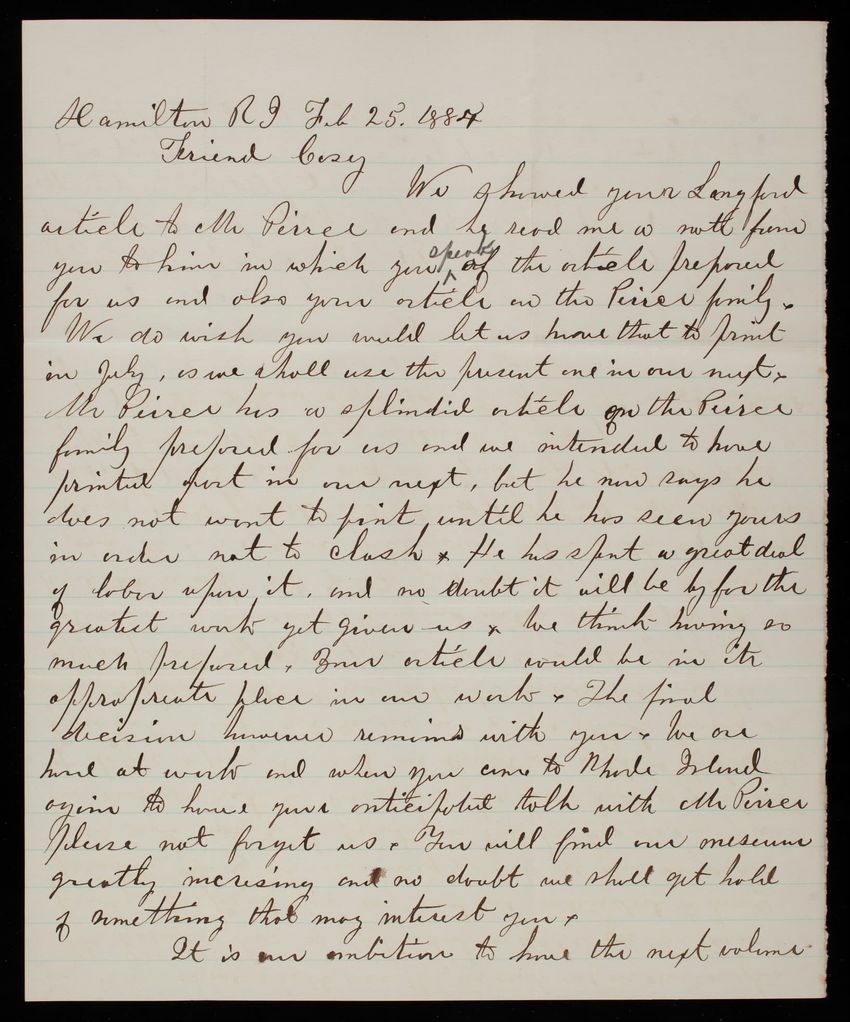 Hamilton R I Feb 25. 1884
Friend Casey
We showed your Langford
article to Mr Peirce and he read me a note from
you to him in which you speak of the article prepared
for us and also your article on the Peirce family.
We do wish you would let us have that to print
in July, as we shall use the present one in our next.
Mr Peirce has a splindid article on the Peirce
family prepared for us and we intended to have
printed part in our next, but he now says he
does not want to print until he has seen yours
in order not to clash. He has spent a great deal
of labor upon it, and no doubt it will be by far the
greatest work yet given us. We think having so
much prepared. Your article would be in its
appropreate place in our work. The final
decision however remains with you. We are
hard at work and when you come to Rhode Island
again to have your anticipated talk with Mr Peirce
please not forget us. You will find our meseum
greatly incresing and no doubt we shall get hold
of something that may interest you.
It is our ambition to have the next volume